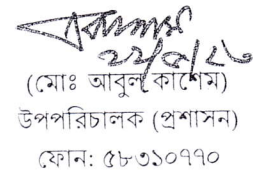 ২২/০৮/২৩
(মোঃ আবুল কাশেম)
উপপরিচালক (প্রশাসন)
ফোন: ৫৮৩১০৭৭০